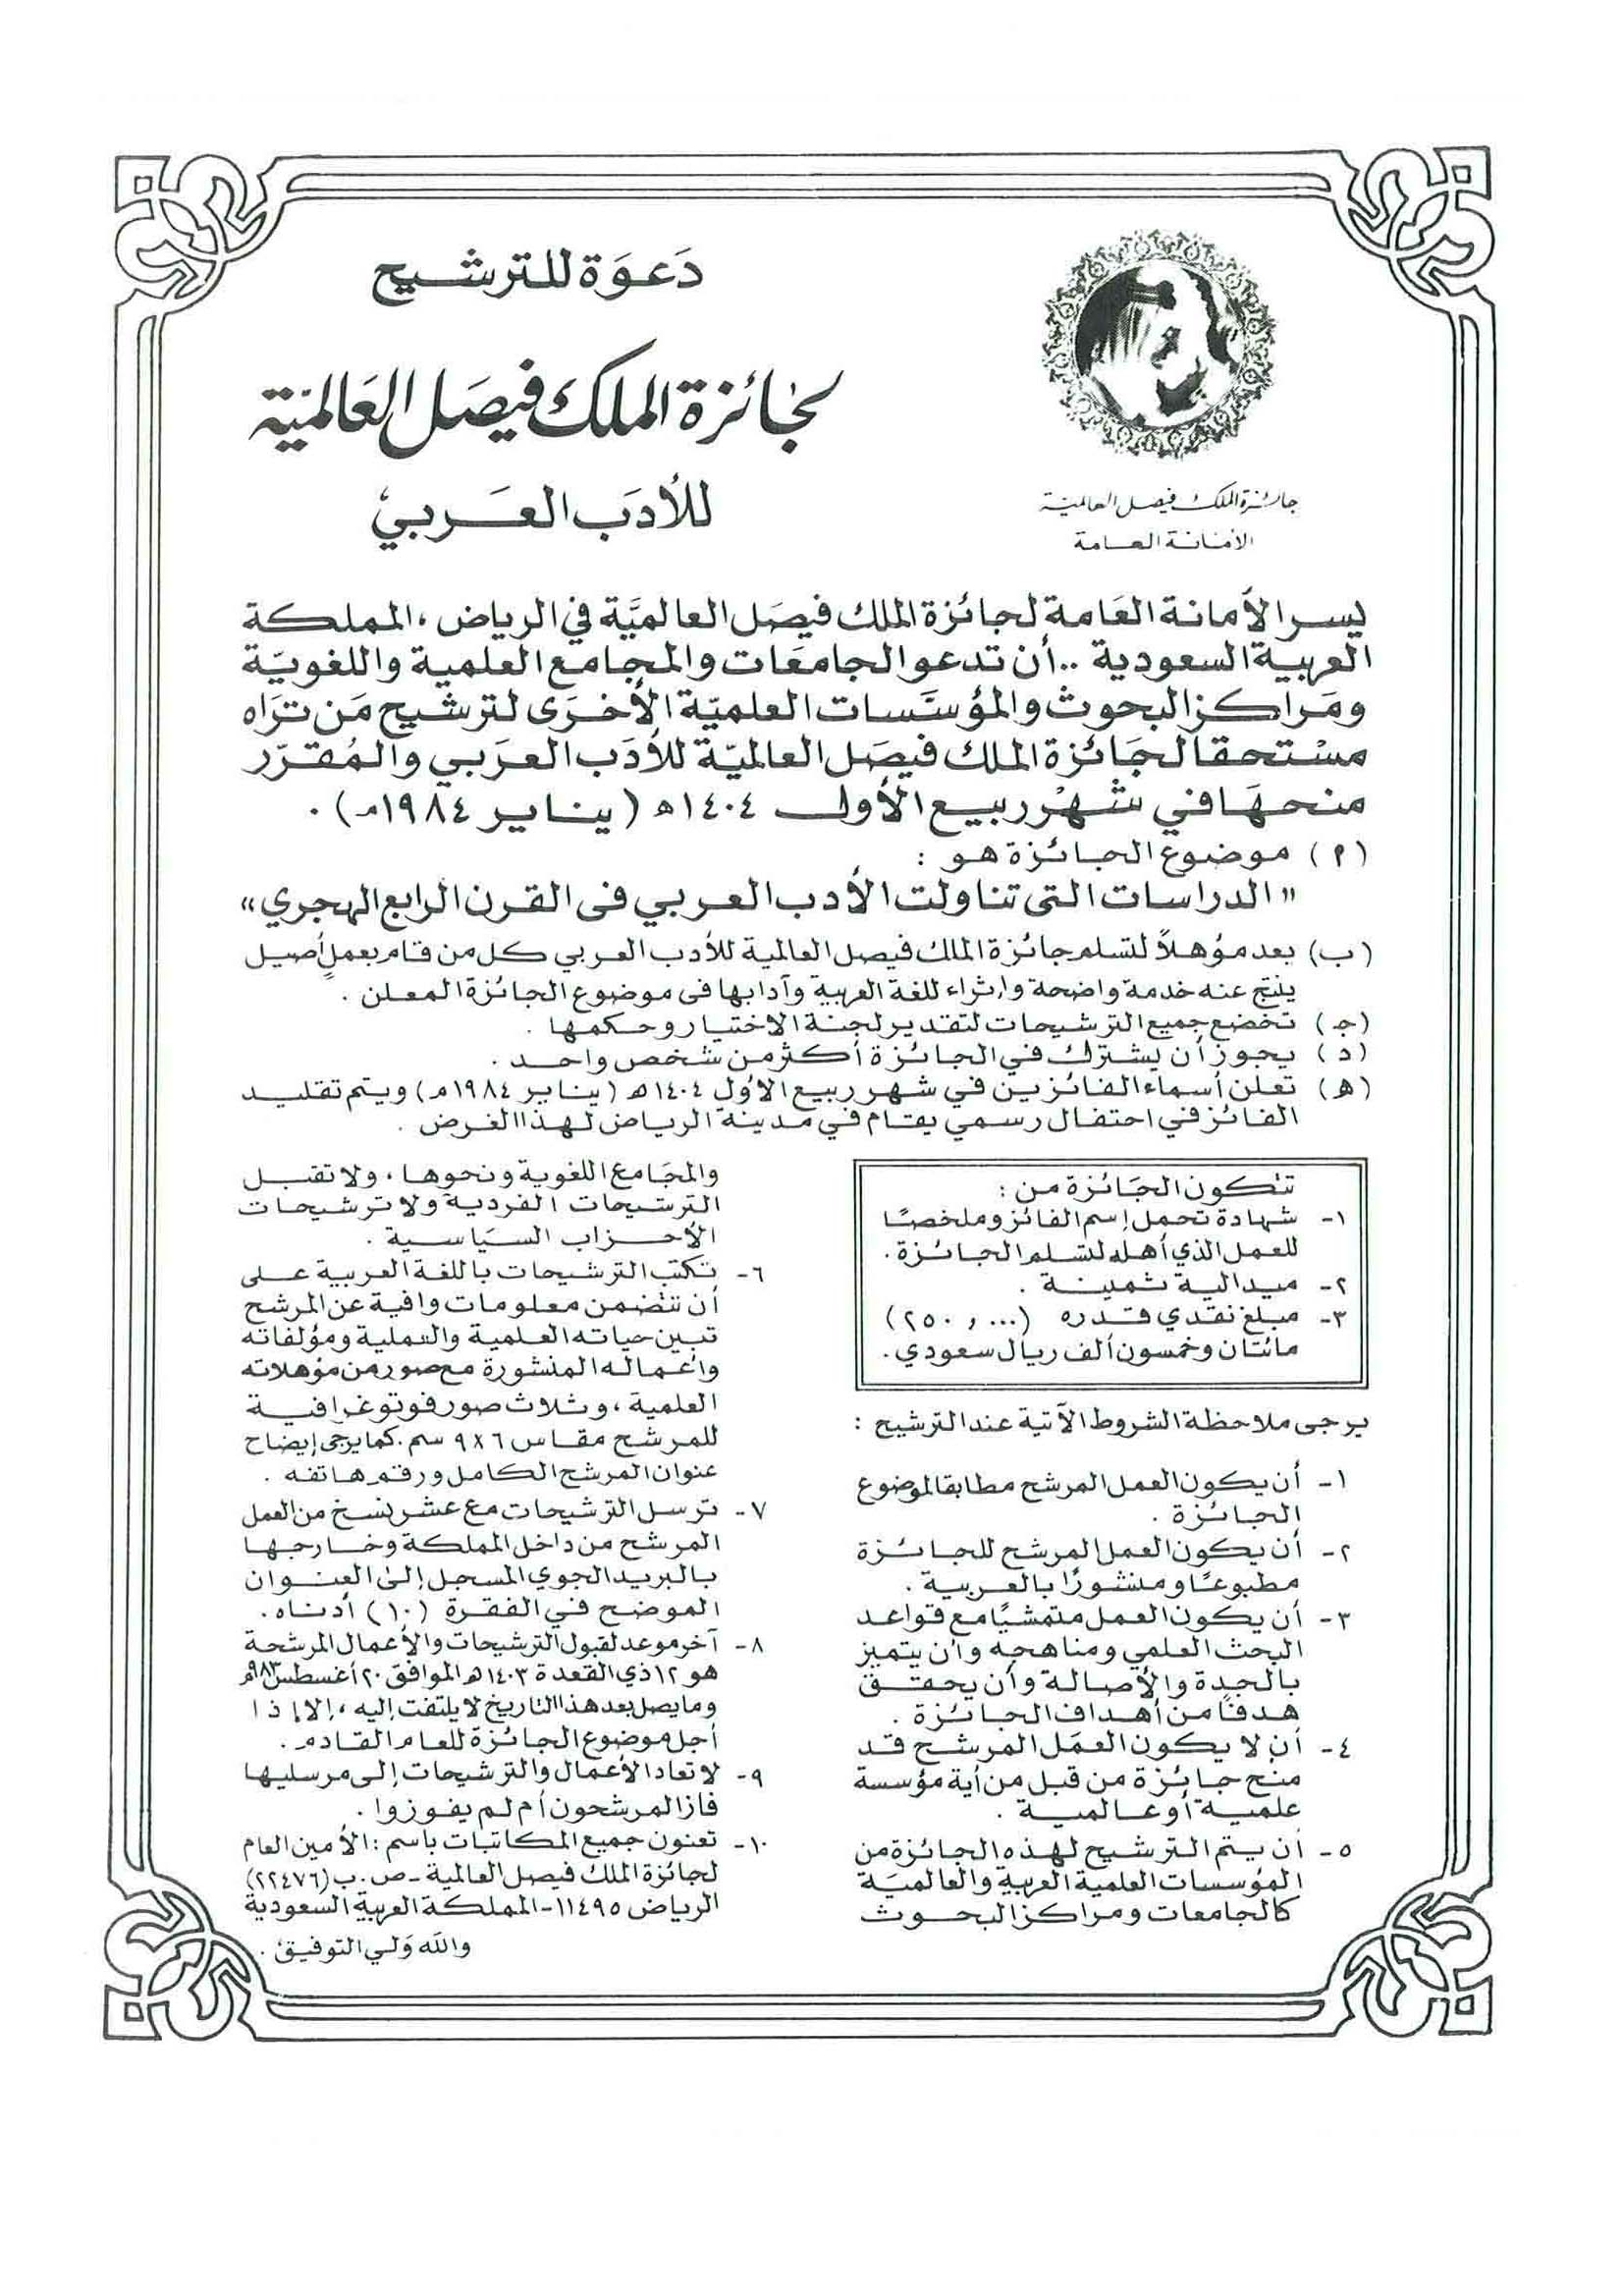 دَعوَة للترشيح
لجائزة الملك فيصل العَالميّة
للأدَب العَربي
جائزة الملك فيصل العالمية
الأمانة العامة
يسر الأمانة العَامة لجائزة الملك فيصَل العالميَّة في الرياض، المملكة
العربية السعودية .. أن تدعو الجامعَات والمجامع العلمية واللغويّة
ومَراكز البحوث والمؤسَّسات العلميّة الأخرَى لترشيح مَن ترَاه
مسْتحقا لجَائزة الملك فيصَل العالميّة للأدَب العرَبي والمُقرّر
منحهَا في شهْر ربيع الأول ١٤٠٤ه (ينايـر ١٩٨٤م) .
(٢) موضوع الجائزة هو :
"الدراسات التى تناولت الأدب العربي فى القرن الرابع الهجري"
(ب) يعد مؤهلاً لتسلم جائزة الملك فيصل العالمية للأدب العربي كل من قام بعمل أصيل
ينتج عنه خدمة واضحة وإثراء للغة العربية وآدابها فى موضوع الجائزة المعلن .
(جـ) تخضع جميع الترشيحات لتقدير لجنة الاختيار وحكمها .
(د) يجوز أن يشترك في الجائزة أكثر من شخص واحد .
(ه) تعلن أسماء الفائزين في شهر ربيع الأول ١٤٠٤ه (يناير ١٩٨٤م) ويتم تقليد
الفائز في احتفال رسمي يقام في مدينة الرياض لهذا الغرض .
تتكون الجَائزة من :
١- شهادة تحمل إسم الفائز وملخصًا
للعمل الذي أهله لتسلم الجائزة .
٢- ميدالية ثمينة .
٣- مبلغ نقدي قدره (٢٥٠,٠٠٠)
مائتان وخمسون ألف ريال سعودي .
يرجى ملاحظة الشروط الآتية عند الترشيح :
١- أن يكون العمل المرشح مطابقا لموضوع
الجائزة .
٢- أن يكون العمل المرشح للجائزة
مطبوعًا ومنشورًا بالعربية .
٣- أن يكون العمل متمشيًا مع قواعد
البحث العلمي ومناهجه وأن يتميز
بالجدة والأصالة وأن يحقق
هدفًا من أهداف الجائزة .
٤- أن لا يكون العمَل المرشح قد
منح جائزة من قبل من أية مؤسسة
علمية أو عالمية .
٥- أن يتم الترشيح لهذه الجائزة من
المؤسسات العلمية العربية والعالميَة
كالجامعات ومراكز البحوث
والمجَامع اللغوية ونحوها، ولا تقبل
الترشيحات الفردية ولا ترشيحات
الأحزاب السيَاسية .
٦- تكتب الترشيحات باللغة العربية على
أن تتضمن معلومات وافية عن المرشح
تبين حياته العلمية والعملية ومؤلفاته
وأعماله المنشورة مع صور من مؤهلاته
العلمية، وثلاث صور فوتوغرافية
للمرشح مقاس ٦x٩ سم . كما يرجى إيضاح
عنوان المرشح الكامل ورقم هاتفه .
٧- ترسل الترشيحات مع عشر نسخ من العمل
المرشح من داخل المملكة وخارجها
بالبريد الجوي المسجل إلى العنوان
الموضح في الفقرة (١٠) أدناه .
٨- آخر موعد لقبول الترشيحات والأعمال المرشحة
هو ١٢ ذي القعدة ١٤٠٣ه الموافق ٢٠ أغسطس ١٩٨٣م
وما يصل بعد هذا التاريخ لا يلتفت إليه، إلا إذا
أجل موضوع الجائزة للعام القادم .
٩- لا تعاد الأعمال والترشيحات إلى مرسليها
فاز المرشحون أم لم يفوزوا .
١٠- تعنون جميع المكاتبات باسم : الأمين العام
لجائزة الملك فيصل العالمية - ص.ب (٢٢٤٧٦)
الرياض ١١٤٩٥ - المملكة العربية السعودية
والله وَلي التوفيق .